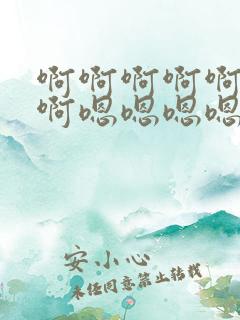 啊啊啊啊啊
啊嗯嗯嗯嗯
安小心
未经同意禁止转载